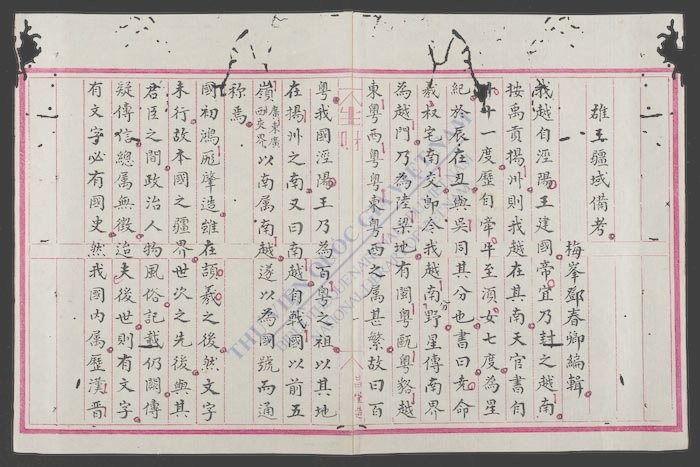 雄王疆域備考
梅峯鄧春卿編輯
我越自涇陽王建國帝宜乃封之越南
按禹貢揚州則我越在其南天官書
十一度歷自牽牛至湏女七度為星
紀於辰在丑與吳同其分也書曰堯命
羲叔宅南交即今我越南分野星傳南界
為越門乃為陸梁地有閩粤甌粤貉越
東粤西粤粤東粤西之属甚繁故曰百
粤我國涇陽王乃為百粤之祖以其地
在揚州之南又曰南越自戰國以前五
嶺廣東廣西交界以南属南越遂以為國號而通
称焉
國初鴻厖肇造雖在頡羲之後然文字
未行故本國之疆界世次之先後與其
君臣之間政治人物風俗記載仍闕傳
疑傳信總属無徵迨夫後世則有文字
有文字必有國史然我國内属歷漢晋
THƯ VIỆN QUỐC GIA VIỆT NAM
NATIONAL LIBRARY OF VIETNAM